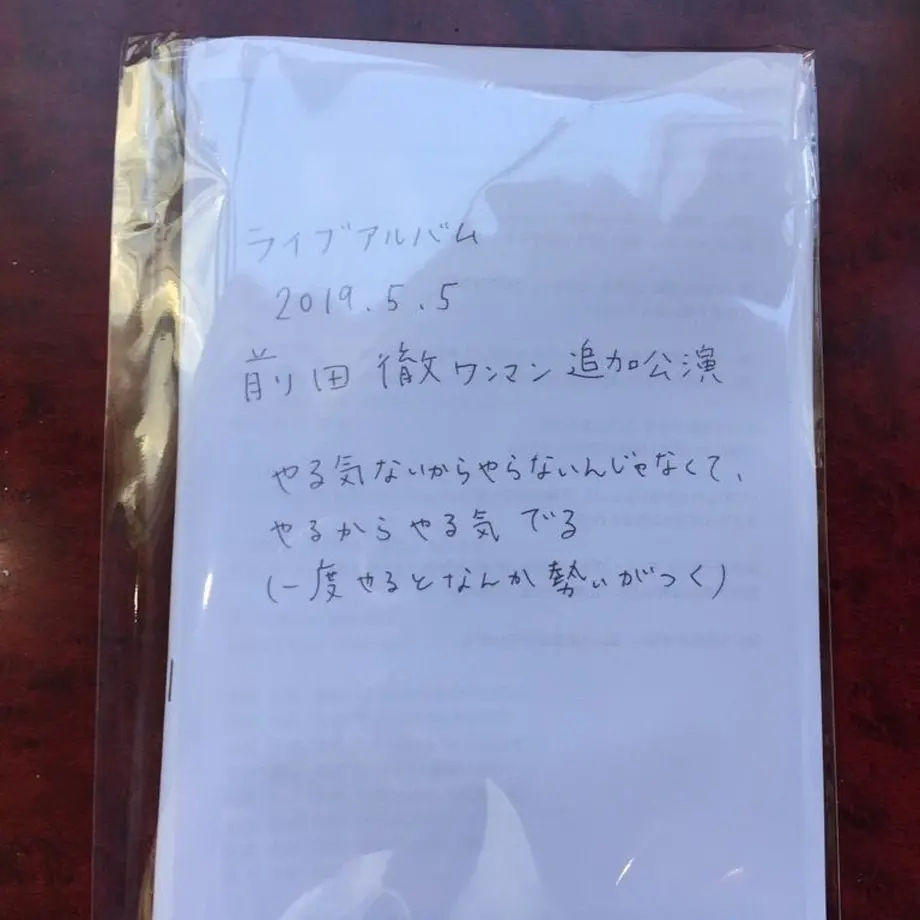 ライブアルバム
2019.5.5
前田 徹ワンマン 追加公演
やる気ないからやらないんじゃなくて、
やるからやる気 でる
(一度やるとなんか勢いがつく)